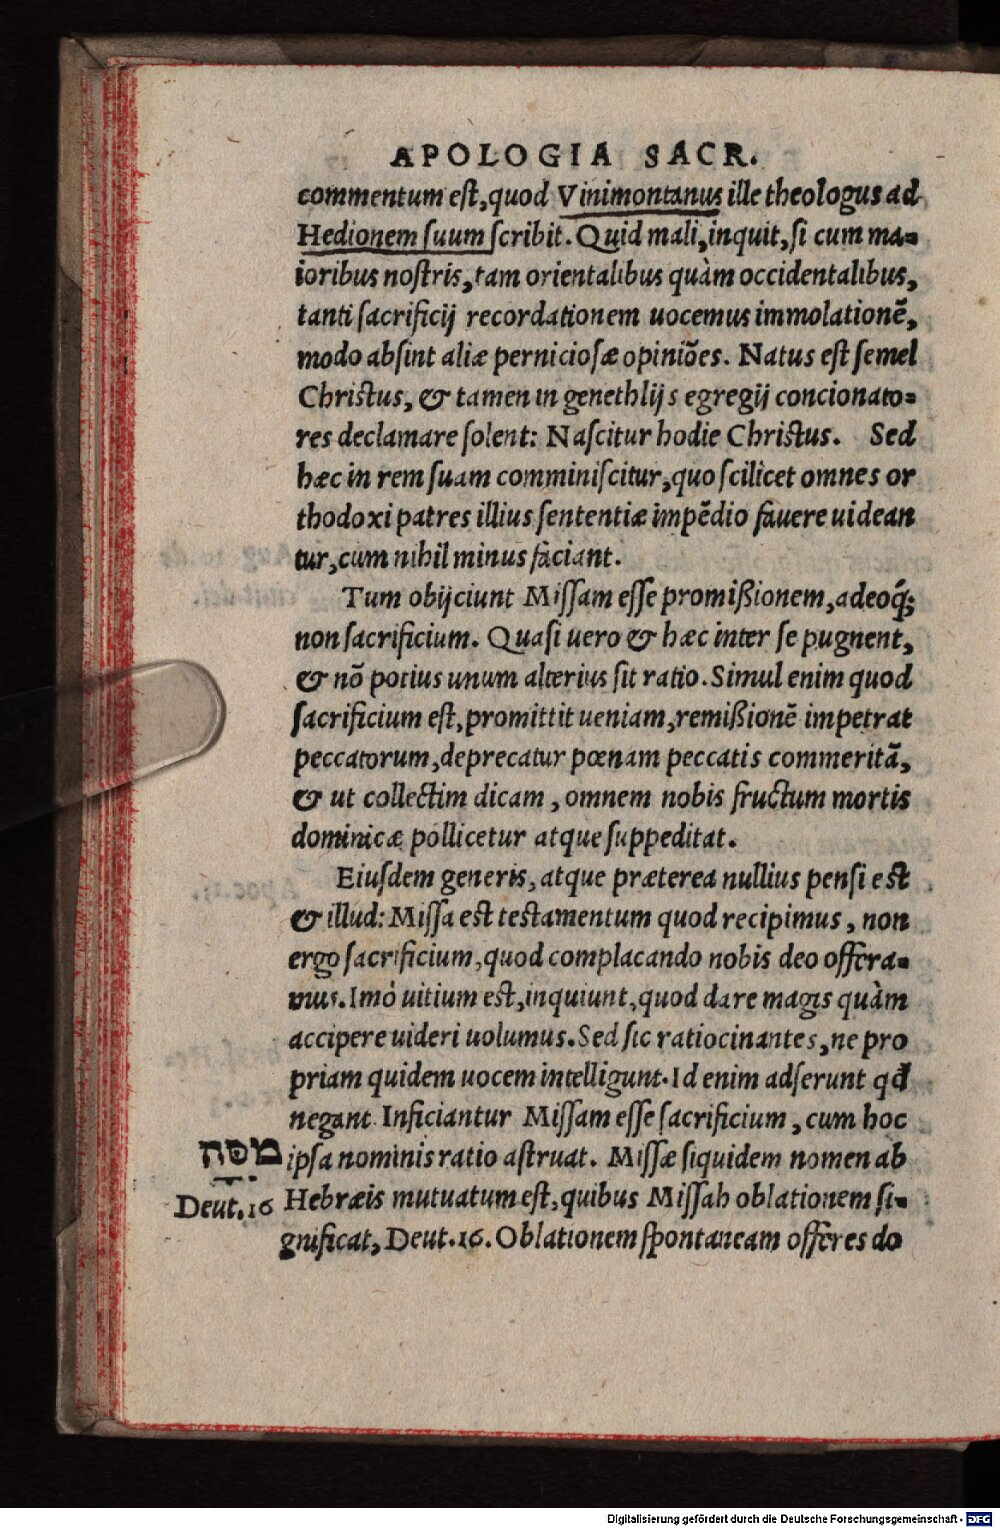 APOLOGIA SACR.
commentum est, quod Vinimontanus ille theologus ad
Hedionem suum scribit. Quid mali, inquit, si cum ma=
ioribus nostris, tam orientalibus quàm occidentalibus,
tanti sacrificij recordationem uocemus immolationē,
modo absint aliæ perniciosæ opiniões. Natus est semel
Christus, & tamen in genethlijs egregij concionato=
res declamare solent: Nascitur hodie Christus. Sed
hæc in rem suam comminiscitur, quo scilicet omnes or
thodoxi patres illius sententiæ impēdio fauere uidean
tur, cum nihil minus faciant.
Tum obijciunt Missam esse promißionem, adeoq́;
non sacrificium. Quasi uero & hæc inter se pugnent,
& nō potius unum alterius sit ratio. Simul enim quod
sacrificium est, promittit ueniam, remißionē impetrat
peccatorum, deprecatur pœnam peccatis commeritā,
& ut collectim dicam, omnem nobis fructum mortis
dominicæ pollicetur atque suppeditat.
Eiusdem generis, atque præterea nullius pensi est
& illud: Missa est testamentum quod recipimus, non
ergo sacrificium, quod complacando nobis deo offera=
mus. Imò uitium est, inquiunt, quod dare magis quàm
accipere uideri uolumus. Sed sic ratiocinantes, ne pro
priam quidem uocem intelligunt. Id enim adserunt qđ
negant. Inficiantur Missam esse sacrificium, cum hoc
מסה
ipsa nominis ratio astruat. Missæ siquidem nomen ab
Deut. 16
Hebræis mutuatum est, quibus Missah oblationem si=
gnificat, Deut. 16. Oblationem spontaneam offeres do
Digitalisierung gefördert durch die Deutsche Forschungsgemeinschaft - DFG